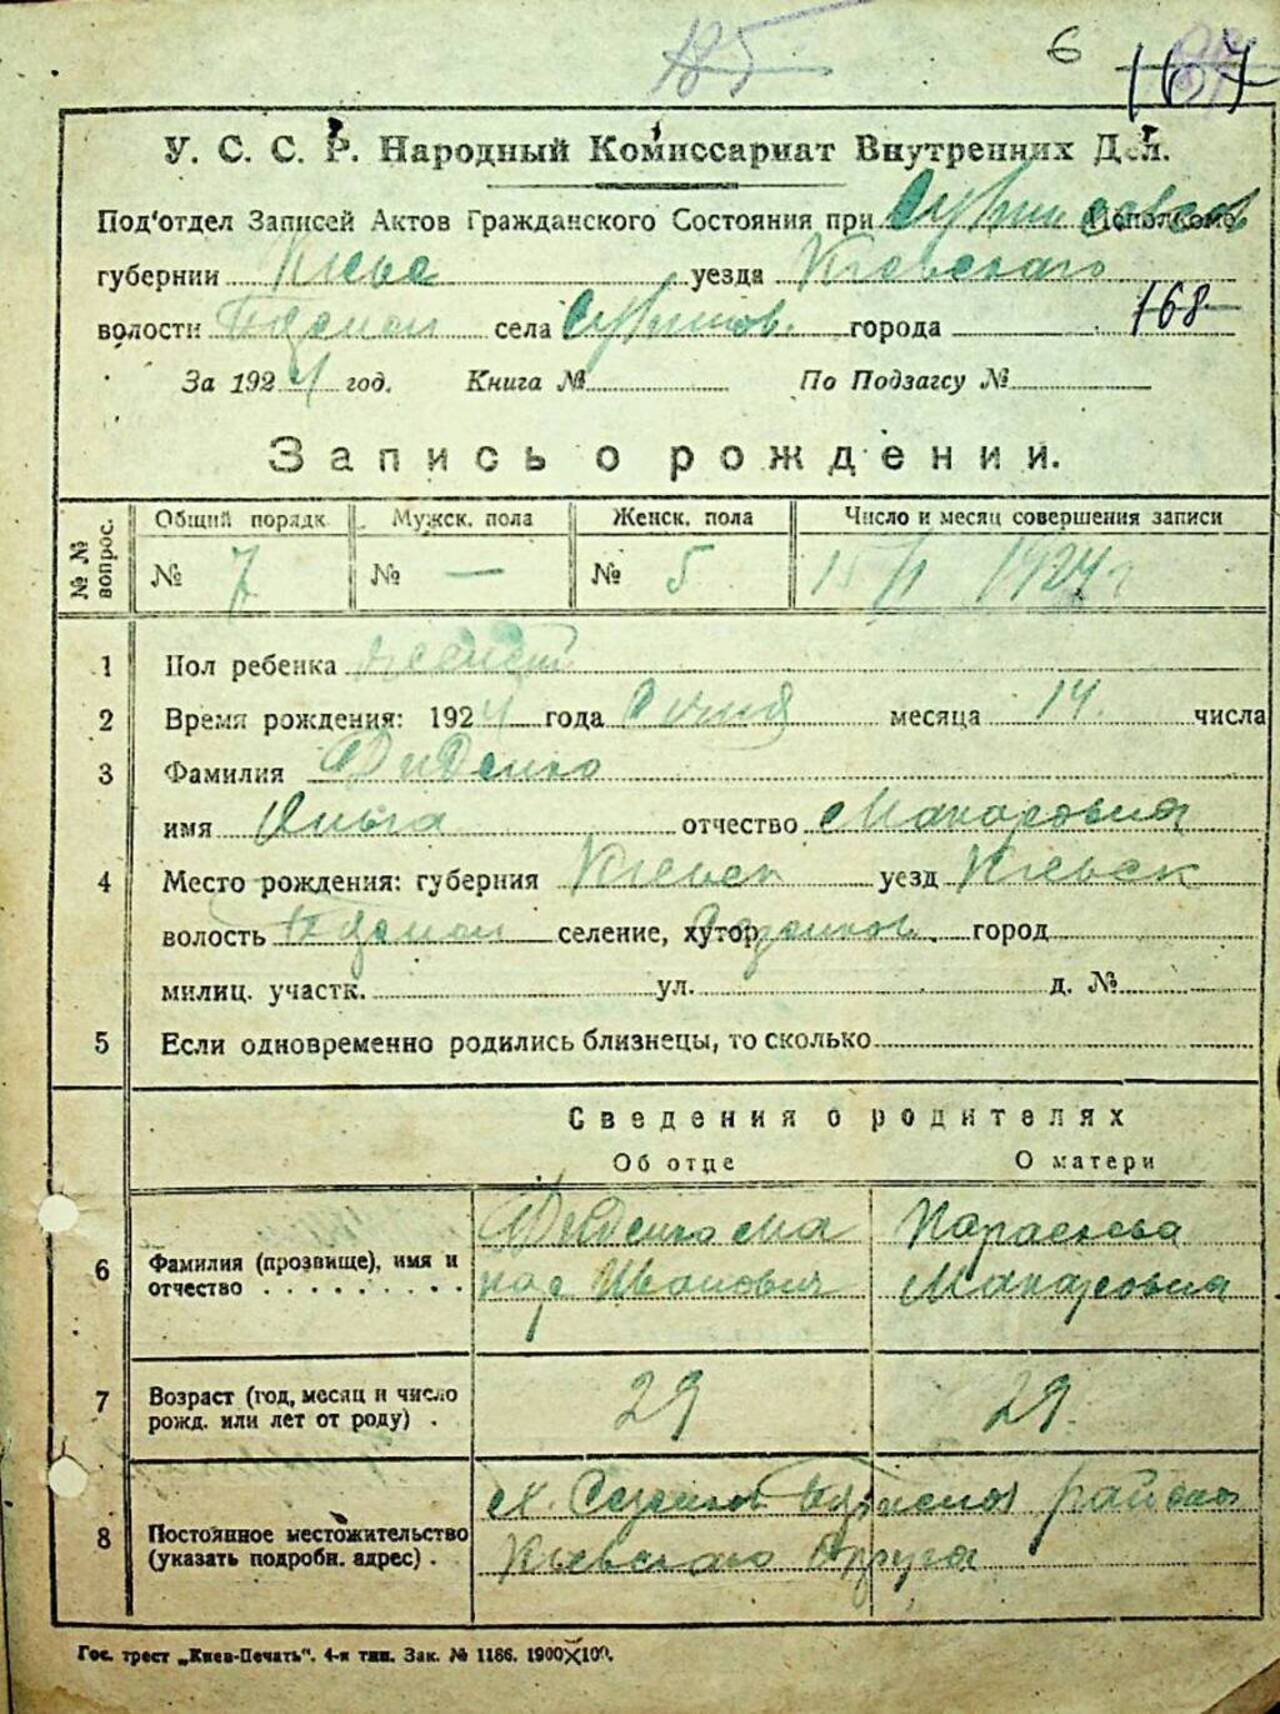 185 6 167
У. С. С. Р. Народный Комиссариат Внутренних Дел.
Под'отдел Записей Актов Гражданского Состояния при Исполкоме
губернии Киевс уезда Киевскаго
волости села города 168
За 1924 год. Книга № По Подзагсу №
Запись о рождении.
№№ вопрос. Общий порядк. Мужск. пола Женск. пола Число и месяц совершения записи
№ 7 № — № 5 15/I 1924 г
1 Пол ребенка
2 Время рождения: 1924 года Січня месяца 14. числа
3 Фамилия Диденко
имя Ольга отчество Макаровна
4 Место рождения: губерния Киевск уезд Киевск
волость селение, хутор город
милиц. участк. ул. д. №
5 Если одновременно родились близнецы, то сколько
Сведения о родителях
Об отце О матери
6 Фамилия (прозвище), имя и отчество . . . . . . . . .
Диденко Ма
кар Иванович
Параскева
Макаровна
7 Возраст (год, месяц и число рожд. или лет от роду) .
29 29.
8 Постоянное местожительство (указать подробн. адрес) .
х. района
Киевскаго Округа
Гос. трест „Киев-Печать“. 4-я тип. Зак. № 1186. 1900X100.